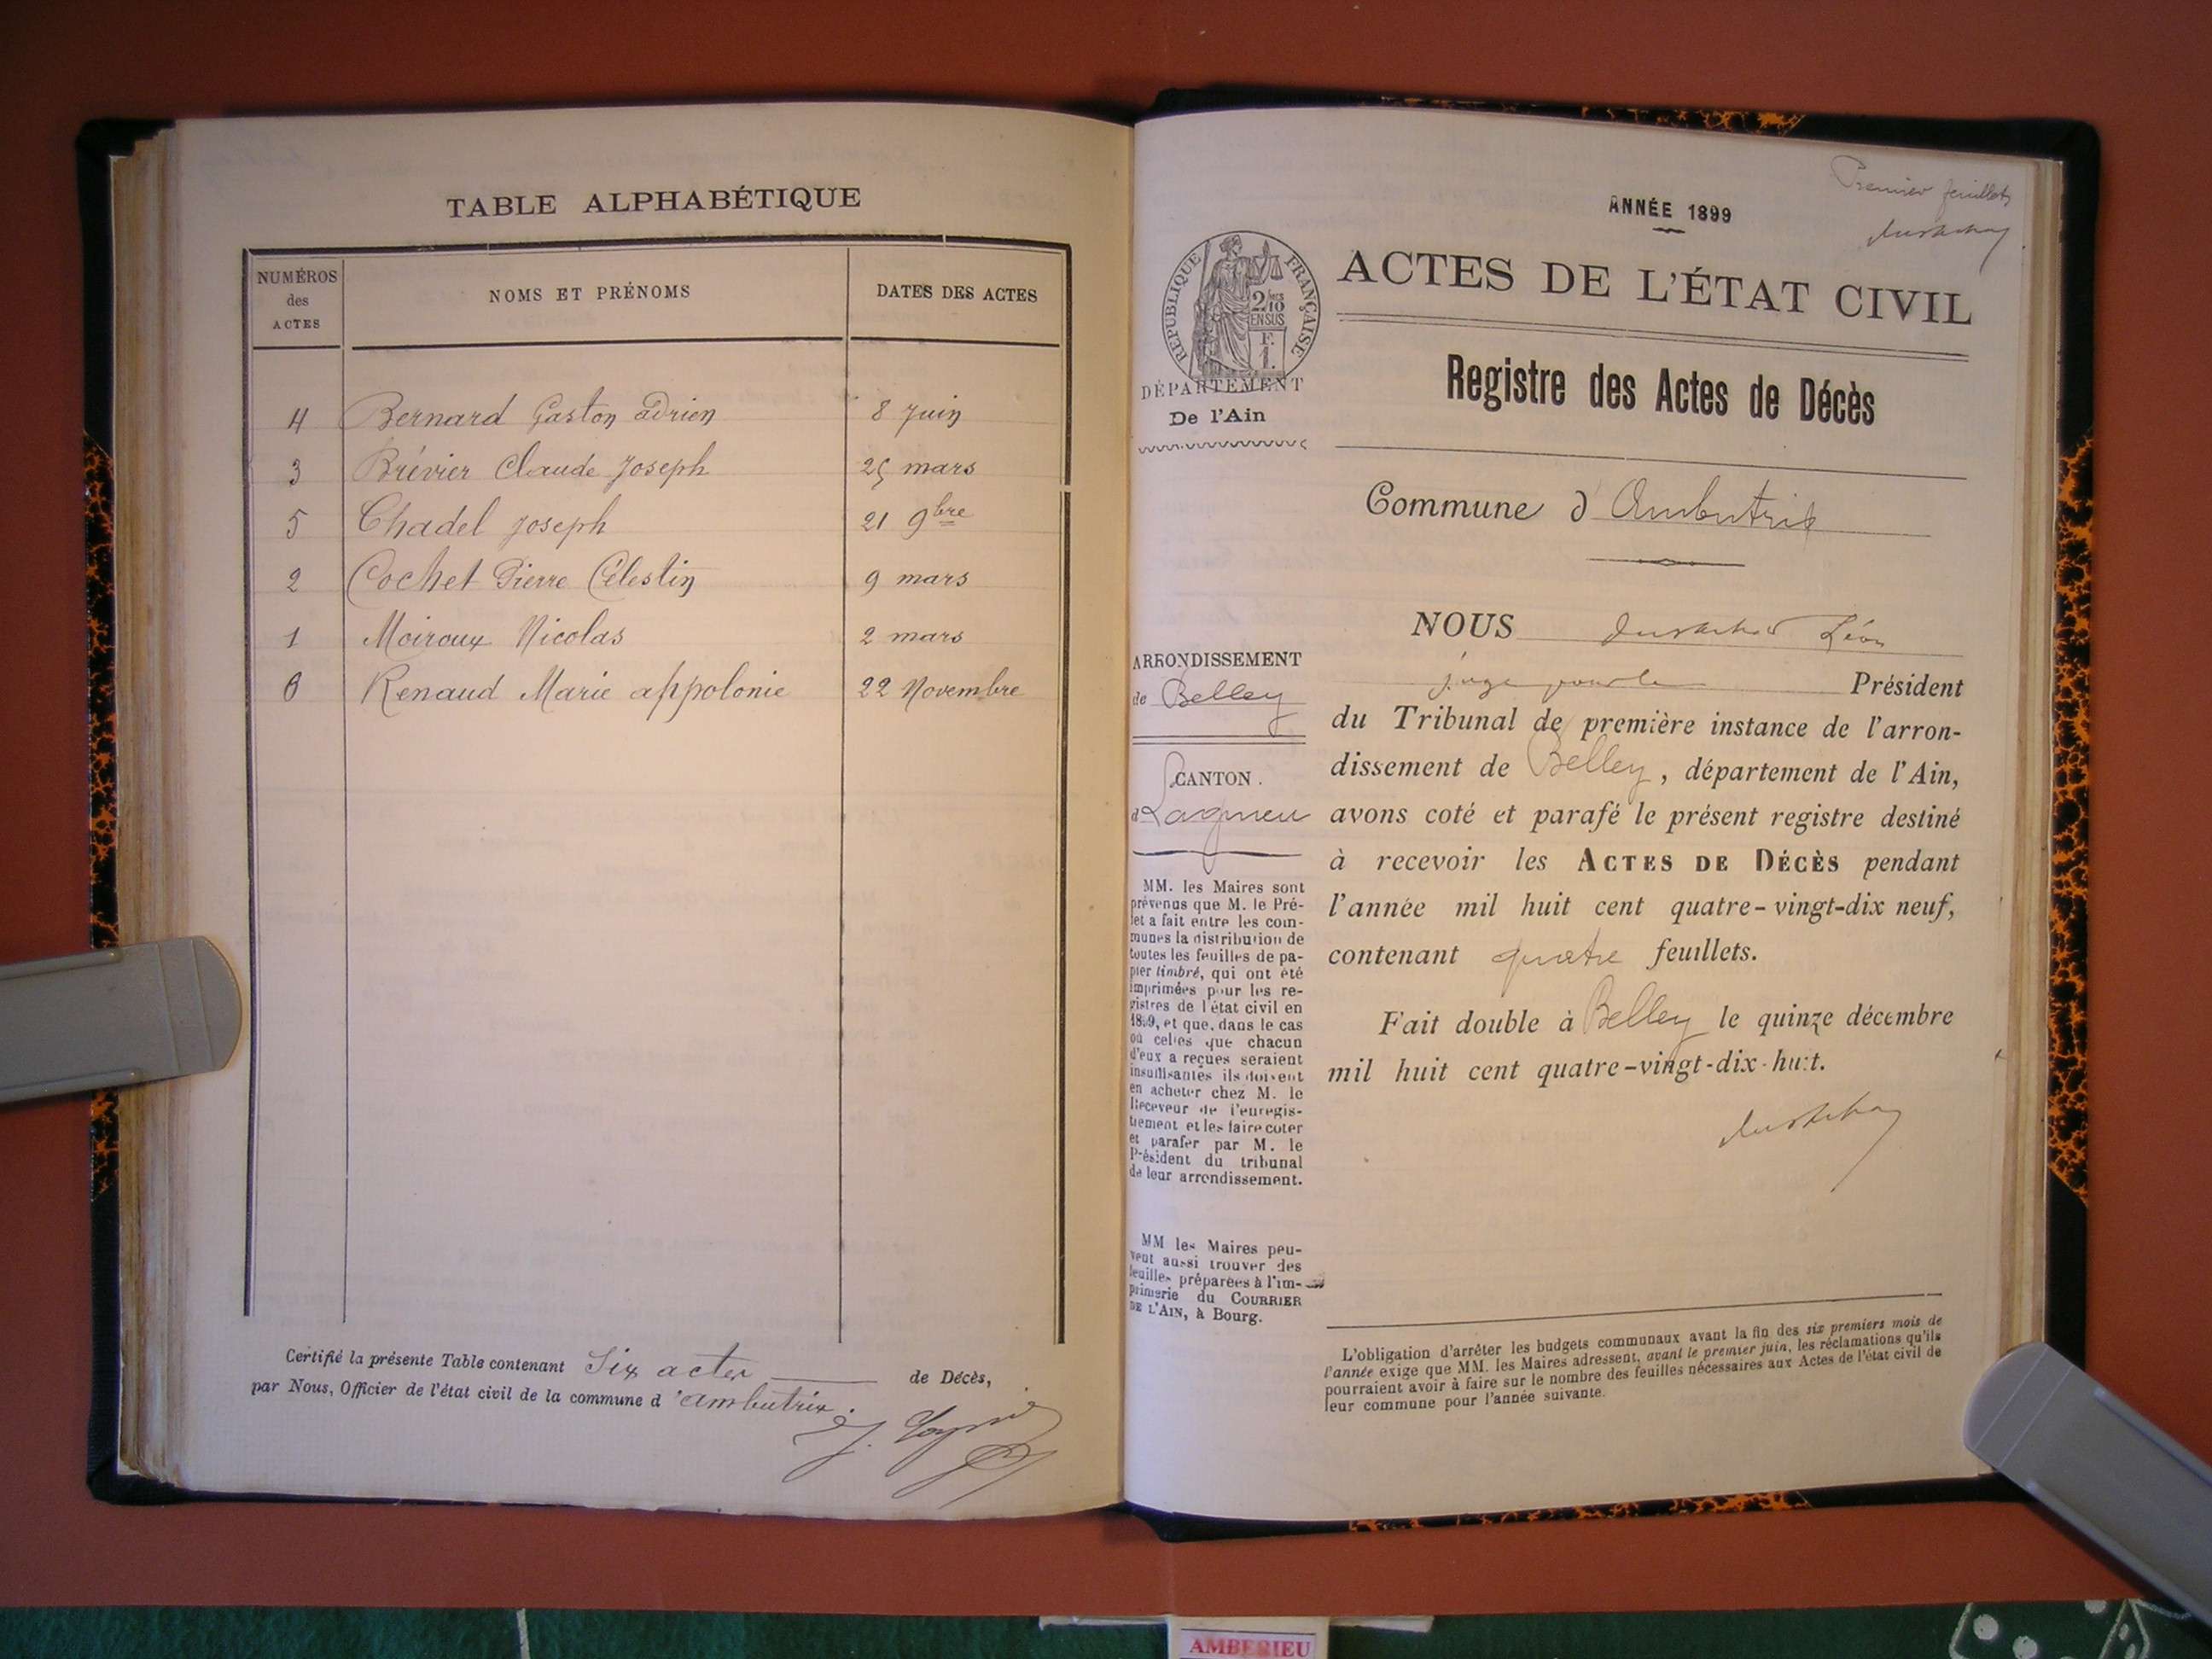 TABLE ALPHABÉTIQUE
NUMÉROS
des
ACTES
NOMS ET PRÉNOMS
DATES DES ACTES
4 Bernard Gaston adrien 8 Juin
3 Brévier Claude Joseph 25 mars
5 Chadel Joseph 21 9bre
2 Cochet Pierre Célestin 9 mars
1 Moiroux Nicolas 2 mars
6 Renaud Marie appolonie 22 Novembre
Certifié la présente Table contenant Six actes de Décès,
par Nous, Officier de l'état civil de la commune d'ambutrix.
Premier feuillet
ANNÉE 1899
ACTES DE L'ÉTAT CIVIL
RÉPUBLIQUE FRANÇAISE
2/10
EN SUS
F.
1.
DÉPARTEMENT
De l'Ain
Registre des Actes de Décès
Commune d'Ambutrix
NOUS Léon
juge pour le Président
du Tribunal de première instance de l'arron-
dissement de Belley, département de l'Ain,
avons coté et parafé le présent registre destiné
à recevoir les ACTES DE DÉCÈS pendant
l'année mil huit cent quatre-vingt-dix neuf,
contenant quatre feuillets.
Fait double à Belley le quinze décembre
mil huit cent quatre-vingt-dix-huit.
ARRONDISSEMENT
de Belley
CANTON.
d Lagnieu
MM. les Maires sont
prévenus que M. le Pré-
fet a fait entre les com-
munes la distribution de
toutes les feuilles de pa-
pier timbré, qui ont été
imprimées pour les re-
gistres de l'état civil en
1899, et que, dans le cas
où celles que chacun
d'eux a reçues seraient
insuffisantes ils doivent
en acheter chez M. le
Receveur de l'enregis-
trement et les faire coter
et parafer par M. le
Président du tribunal
de leur arrondissement.
MM les Maires peu-
vent aussi trouver des
feuilles préparées à l'im-
primerie du COURRIER
DE L'AIN, à Bourg.
L'obligation d'arrêter les budgets communaux avant la fin des six premiers mois de
l'année exige que MM. les Maires adressent, avant le premier juin, les réclamations qu'ils
pourraient avoir à faire sur le nombre des feuilles nécessaires aux Actes de l'état civil de
leur commune pour l'année suivante.
AMBERIEU